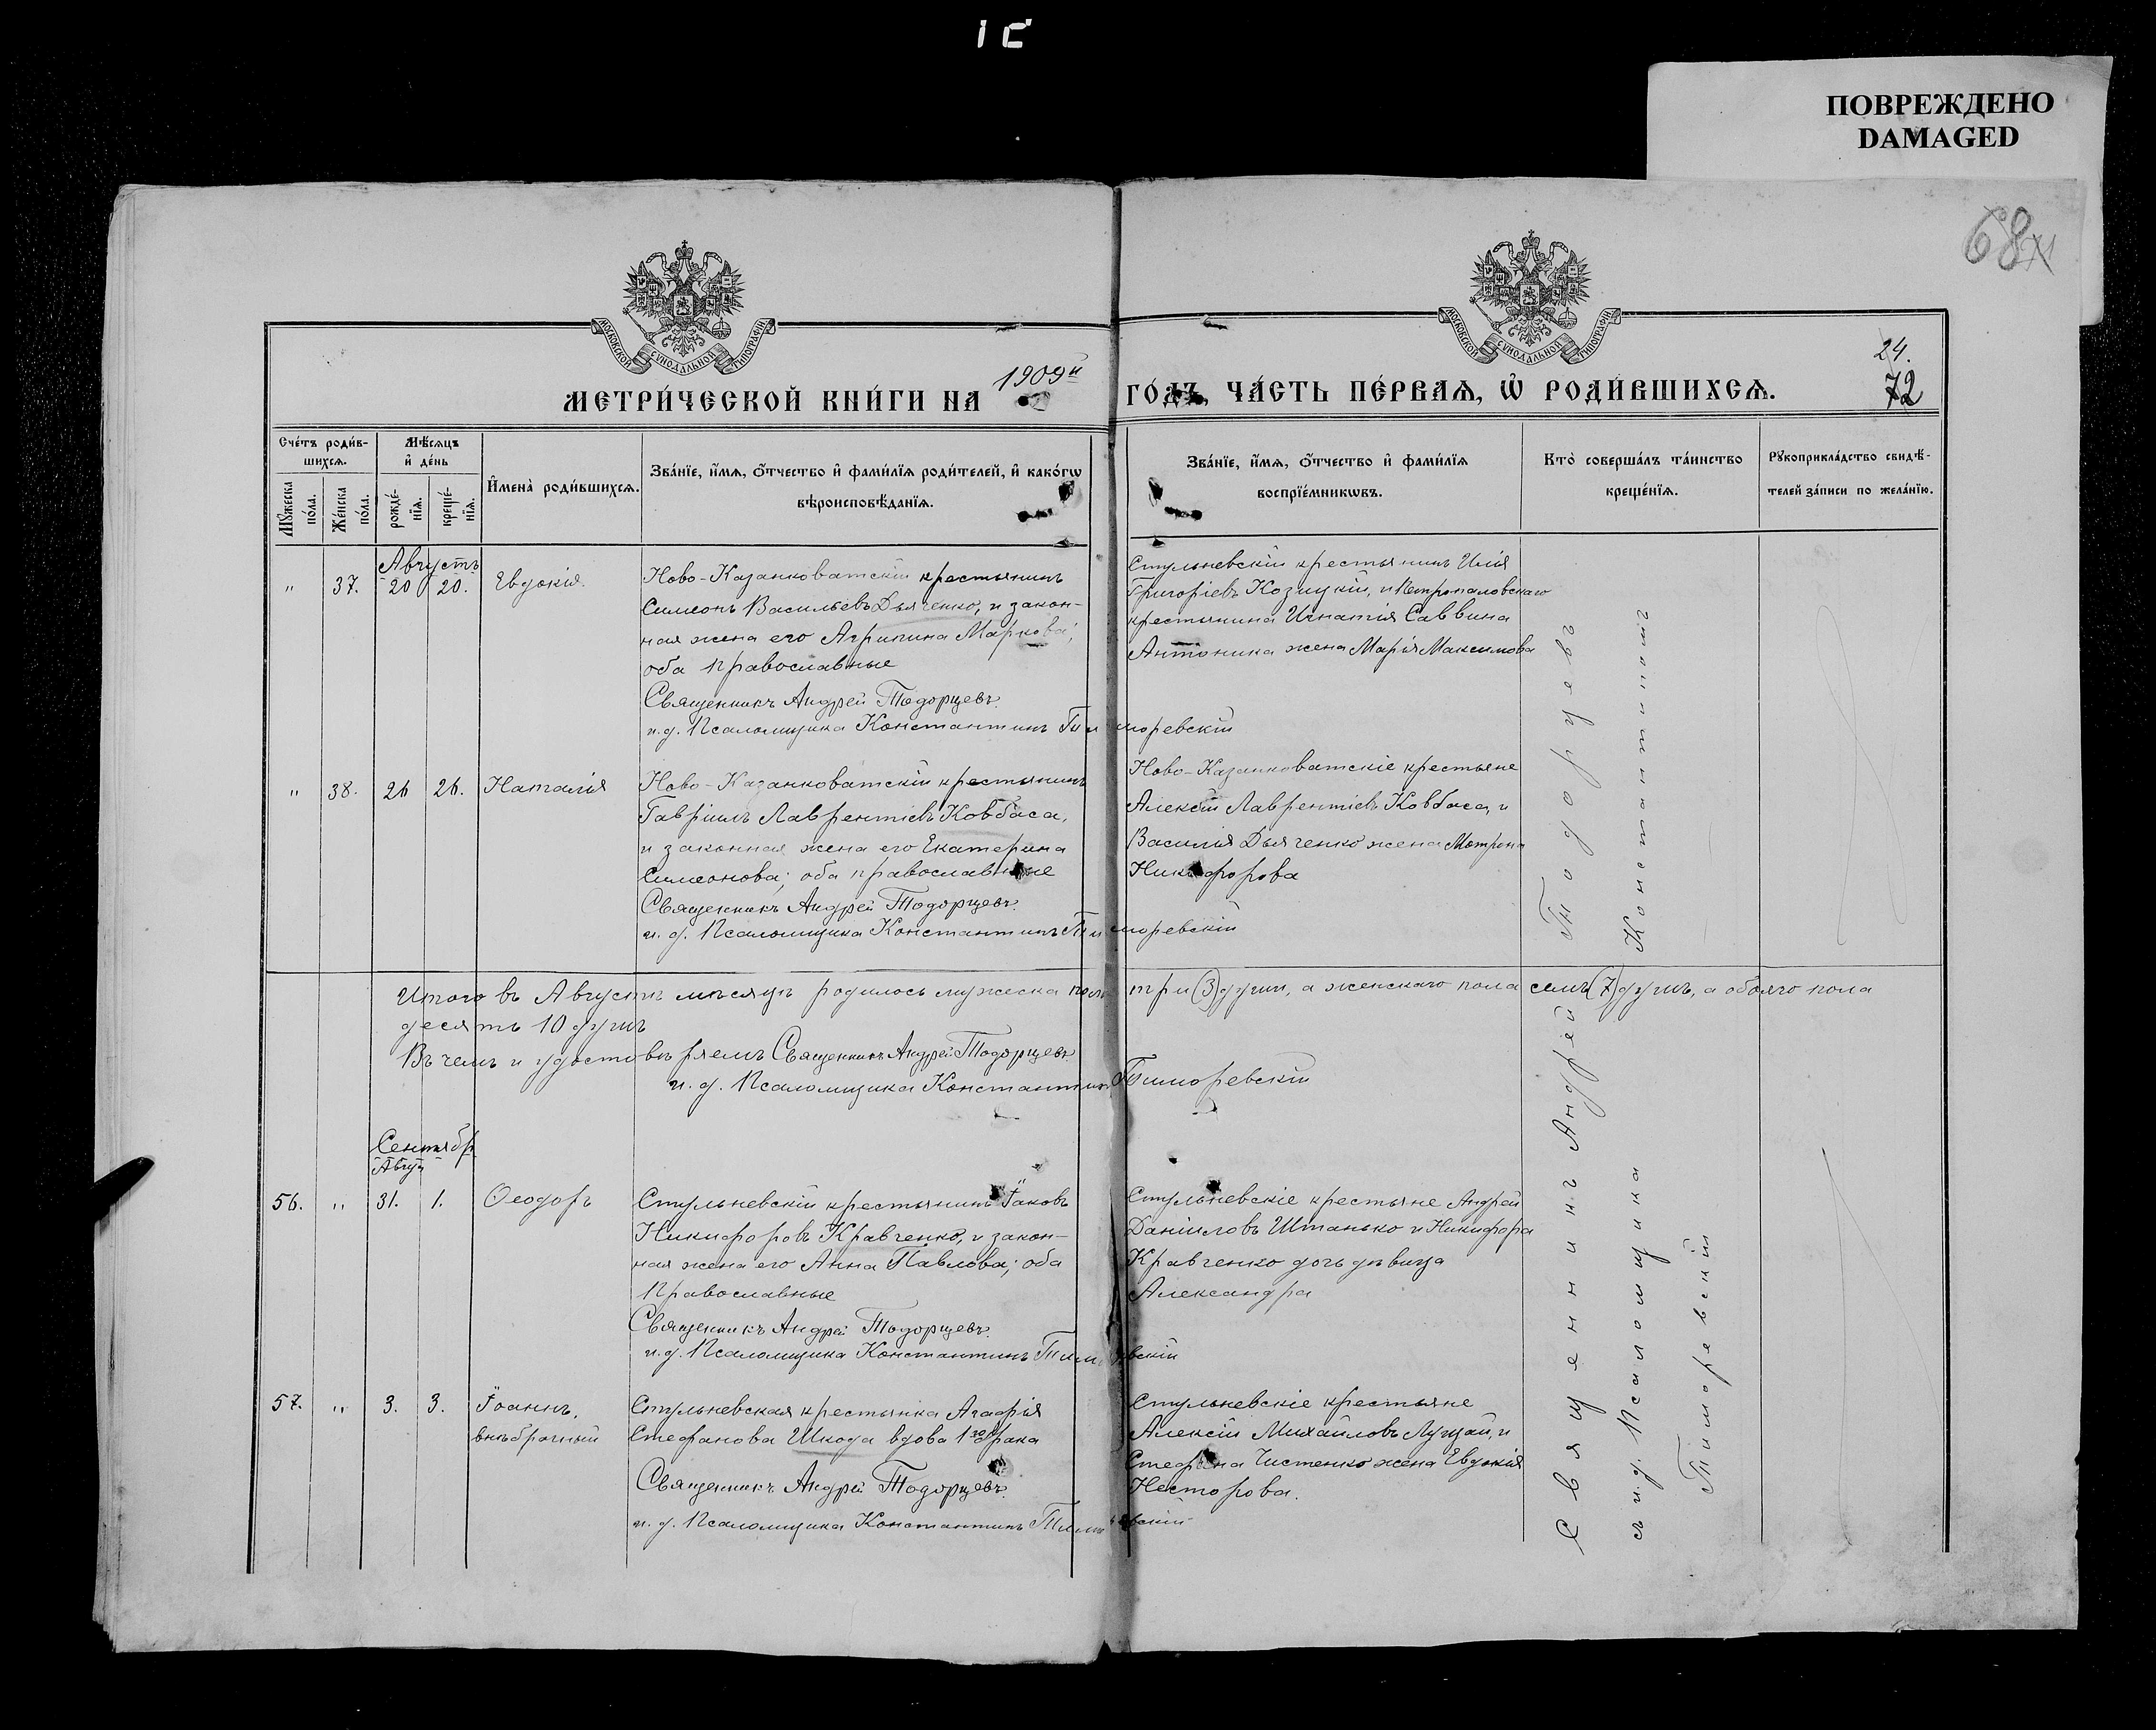 ПОВРЕЖДЕНО
DAMAGED
68
24.
72
МОСКОВСКОЙ СѴНОДАЛЬНОЙ ТИПОГРАФІИ
МОСКОВСКОЙ СѴНОДАЛЬНОЙ ТИПОГРАФІИ
МЕТРИ́ЧЕСКОЙ КНИ́ГИ НА 1909й ГО́ДЪ, ЧА́СТЬ ПЕ́РВАѦ, Ѿ РОДИ́ВШИХСѦ.
Сче́тъ роди́в-
шихсѧ.
Мꙋ́жеска по́ла.
Же́нска по́ла.
Мѣ́сѧцъ
и҆ де́нь
рожде́-нїѧ.
креще́-нїѧ.
И҆мена̀ роди́вшихсѧ.
Зва́нїе, и҆́мѧ, ѻ҆́тчество и҆ фами́лїѧ роди́телей, и҆ како́гѡ
вѣроисповѣ́данїѧ.
Зва́нїе, и҆́мѧ, ѻ҆́тчество и҆ фами́лїѧ
воспрїе́мникѡвъ.
Кто̀ соверша́лъ та́инство
креще́нїѧ.
Рꙋкоприкла́дство свидѣ́-
телей за́писи по жела́нїю.
Августъ
" 37. 20 20. Евдокія.
Ново-Казанковатскій крестьянинъ
Симеонъ Васильевъ Дьяченко, и закон-
ная жена его Агрипина Маркова;
оба православные
Священникъ Андрей Тодорцевъ.
и. д. Псаломщика Константинъ Тиморевскій
Стульневскій крестьянинъ Илія
Григоріевъ Козицкій, и Петропаловскаго
крестьянина Игнатія Саввина
Антоника жена Марія Максимова
" 38. 26 26. Наталія
Ново-Казанковатскій крестьянинъ
Гавріилъ Лаврентіевъ Ковбаса,
и законная жена его Екатерина
Симеонова; оба православные
Священникъ Андрей Тодорцевъ.
и. д. Псаломщика Константинъ Тиморевскій
Ново-Казанковатскіе крестьяне
Алексій Лаврентіевъ Ковбаса, и
Василія Дьяченко жена Матрона
Никифорова
Итого въ Августѣ мѣсяцѣ родилось мужеска пола три (3) души, а женскаго пола семь (7) душъ, а обоего пола
десять 10 душъ
Въ чемъ и удостовѣряемъ Священникъ Андрей Тодорцевъ.
и. д. Псаломщика Константинъ Тиморевскій
Сентябр
Авгус
56. " 31. 1. Ѳеодоръ
Стульневскій крестьянинъ Іаковъ
Никифоровъ Кравченко, и закон-
ная жена его Анна Павлова; оба
Православные
Священникъ Андрей Тодорцевъ.
и. д. Псаломщика Константинъ Тиморевскій
Стульневскіе крестьяне Андрей
Даніиловъ Штанько и Никифора
Кравченко дочь дѣвица
Александра
57. " 3. 3. Іоаннъ,
внѣбрачный
Стульневская крестьянка Агафія
Стефанова Шкода вдова 1го брака
Священникъ Андрей Тодорцевъ.
и. д. Псаломщика Константинъ Тиморевскій
Стульневскіе крестьяне
Алексій Михайловъ Луцай, и
Стефана Чистенко жена Евдокія
Несторова.
Священникъ Андрей Тодорцевъ
съ и. д. Псаломщика Константинъ
Тиморевскій